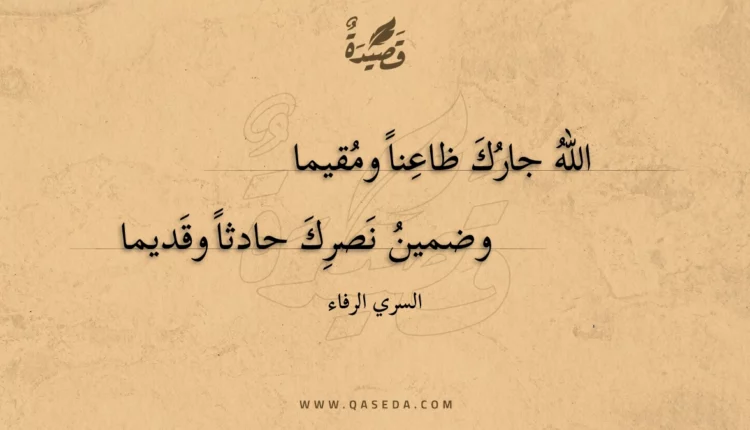 قَصِيْدَةٌ
اللهُ جارُكَ ظاعِناً ومُقيما
وضمينُ نَصرِكَ حادثاً وقَديما
السري الرفاء
WWW.QASEDA.COM